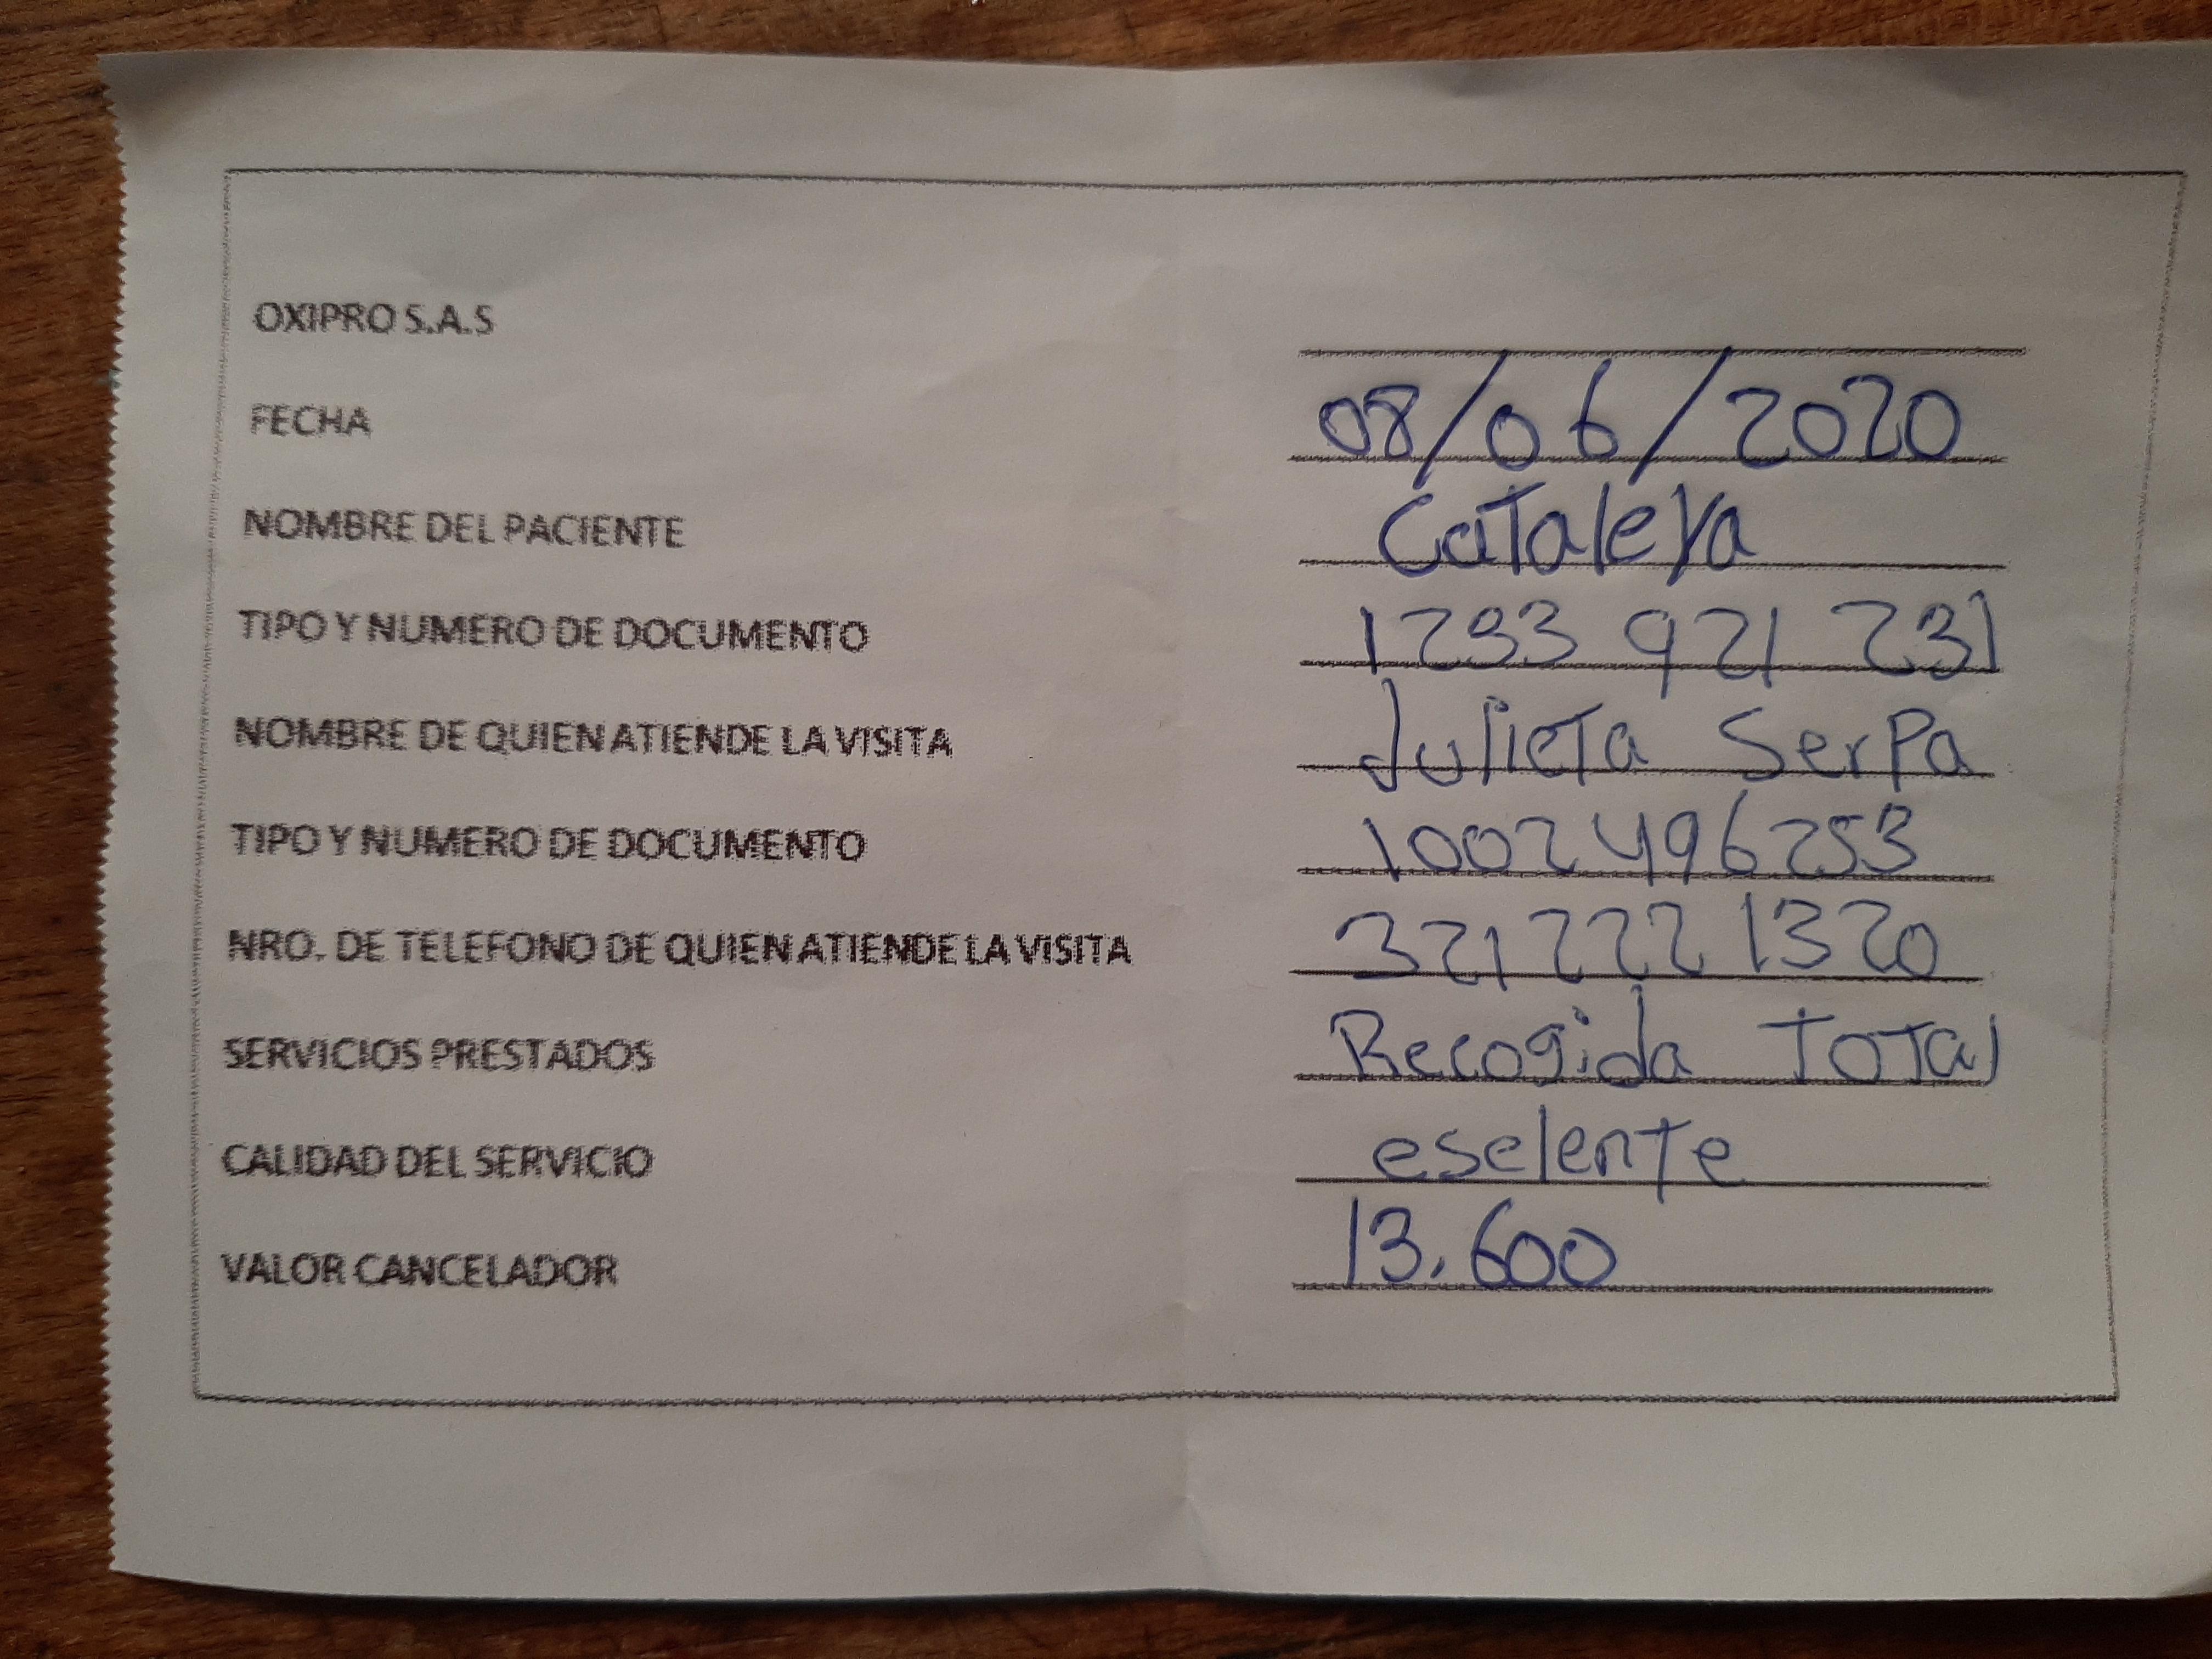 OXIPRO S.A.S
FECHA 08/06/2020
NOMBRE DEL PACIENTE Cataleya
TIPO Y NUMERO DE DOCUMENTO 1293 921 231
NOMBRE DE QUIEN ATIENDE LA VISITA Julieta Serpa
TIPO Y NUMERO DE DOCUMENTO 1002496253
NRO. DE TELEFONO DE QUIEN ATIENDE LA VISITA 321 222 1320
SERVICIOS PRESTADOS Recogida Total
CALIDAD DEL SERVICIO eselente
VALOR CANCELADOR 13.600